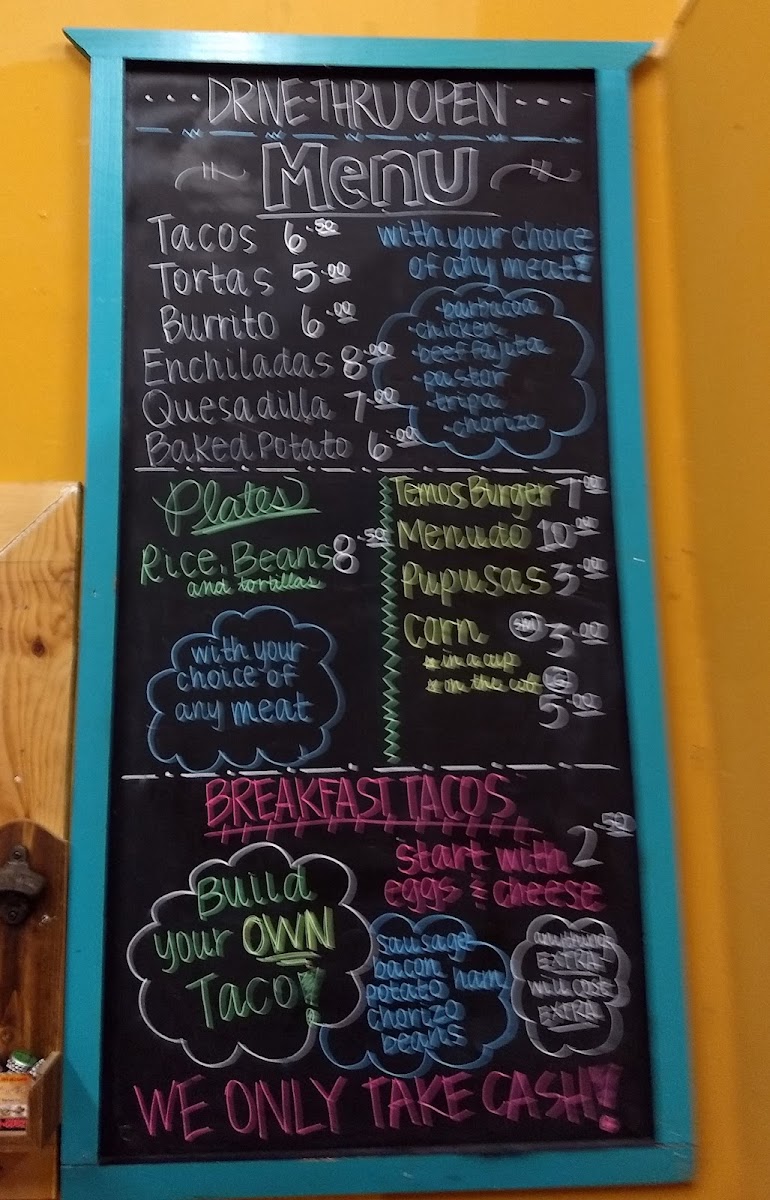 DRIVE-THRU OPEN
Menu
Tacos 6.50
Tortas 5.00
Burrito 6.00
Enchiladas 8.00
Quesadilla 7.00
Baked Potato 6.00
with your choice
of any meat!
- barbacoa
- chicken
- beef fajita
- pastor
- tripa
- chorizo
Plates
Rice, Beans 8.50
and tortillas
with your
choice of
any meat
Temos Burger 7.00
Menudo 10.00
Pupusas 3.00
Corn SM 3.00
* in a cup
* on the cob LG
5.00
BREAKFAST TACOS
2.50
start with
eggs & cheese
Build
your OWN
Taco!
sausage
bacon
potato ham
chorizo
beans
anything
EXTRA!
WILL COST
EXTRA!
WE ONLY TAKE CASH!